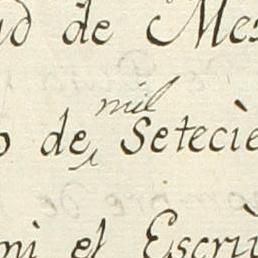 ad de Mes
o de mil Setecie
ni et Escriv